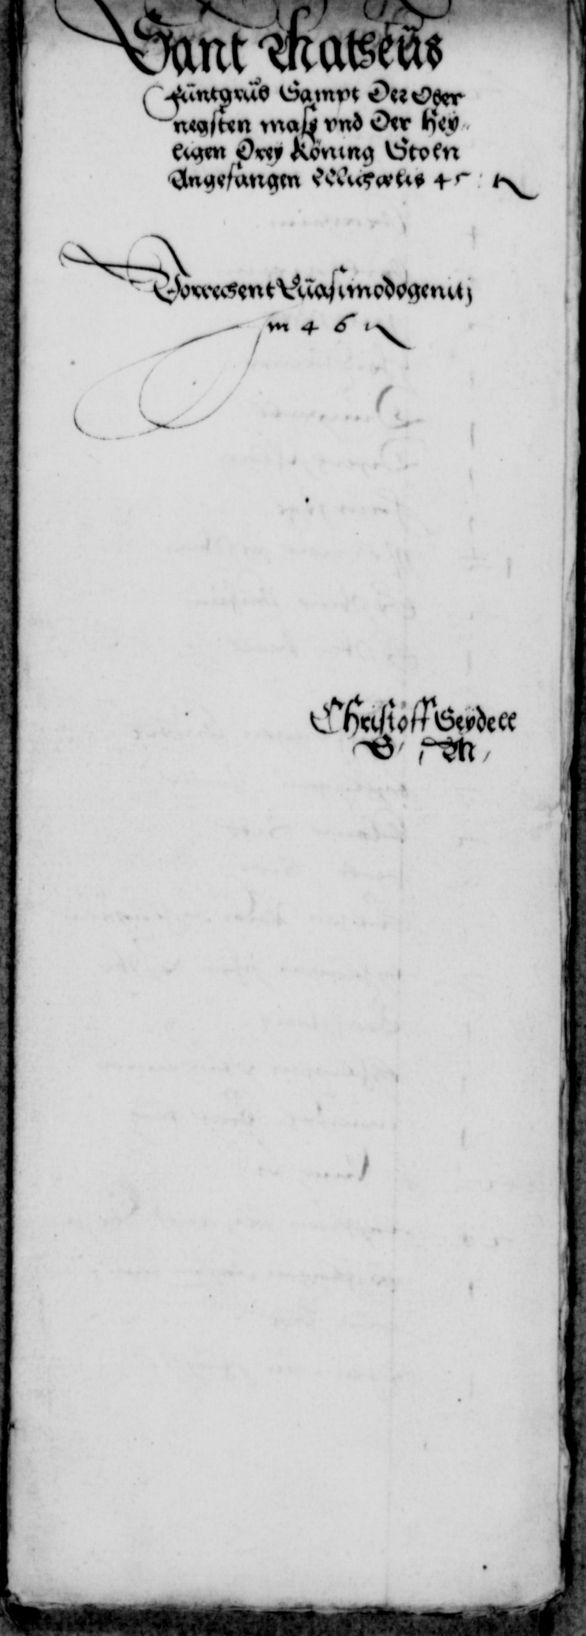 Sant Matheus
Fundtgrub Sampt Der Ober
negsten mass vnd Der Hey-
ligen Drey Köning Stoln
Angefangen Michaelis 45
Vorrechent Quasimodogenitj
im 46
Christoff Seydell
S M